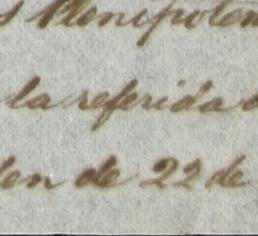 s Plenipoten
la referida
den de 22 de